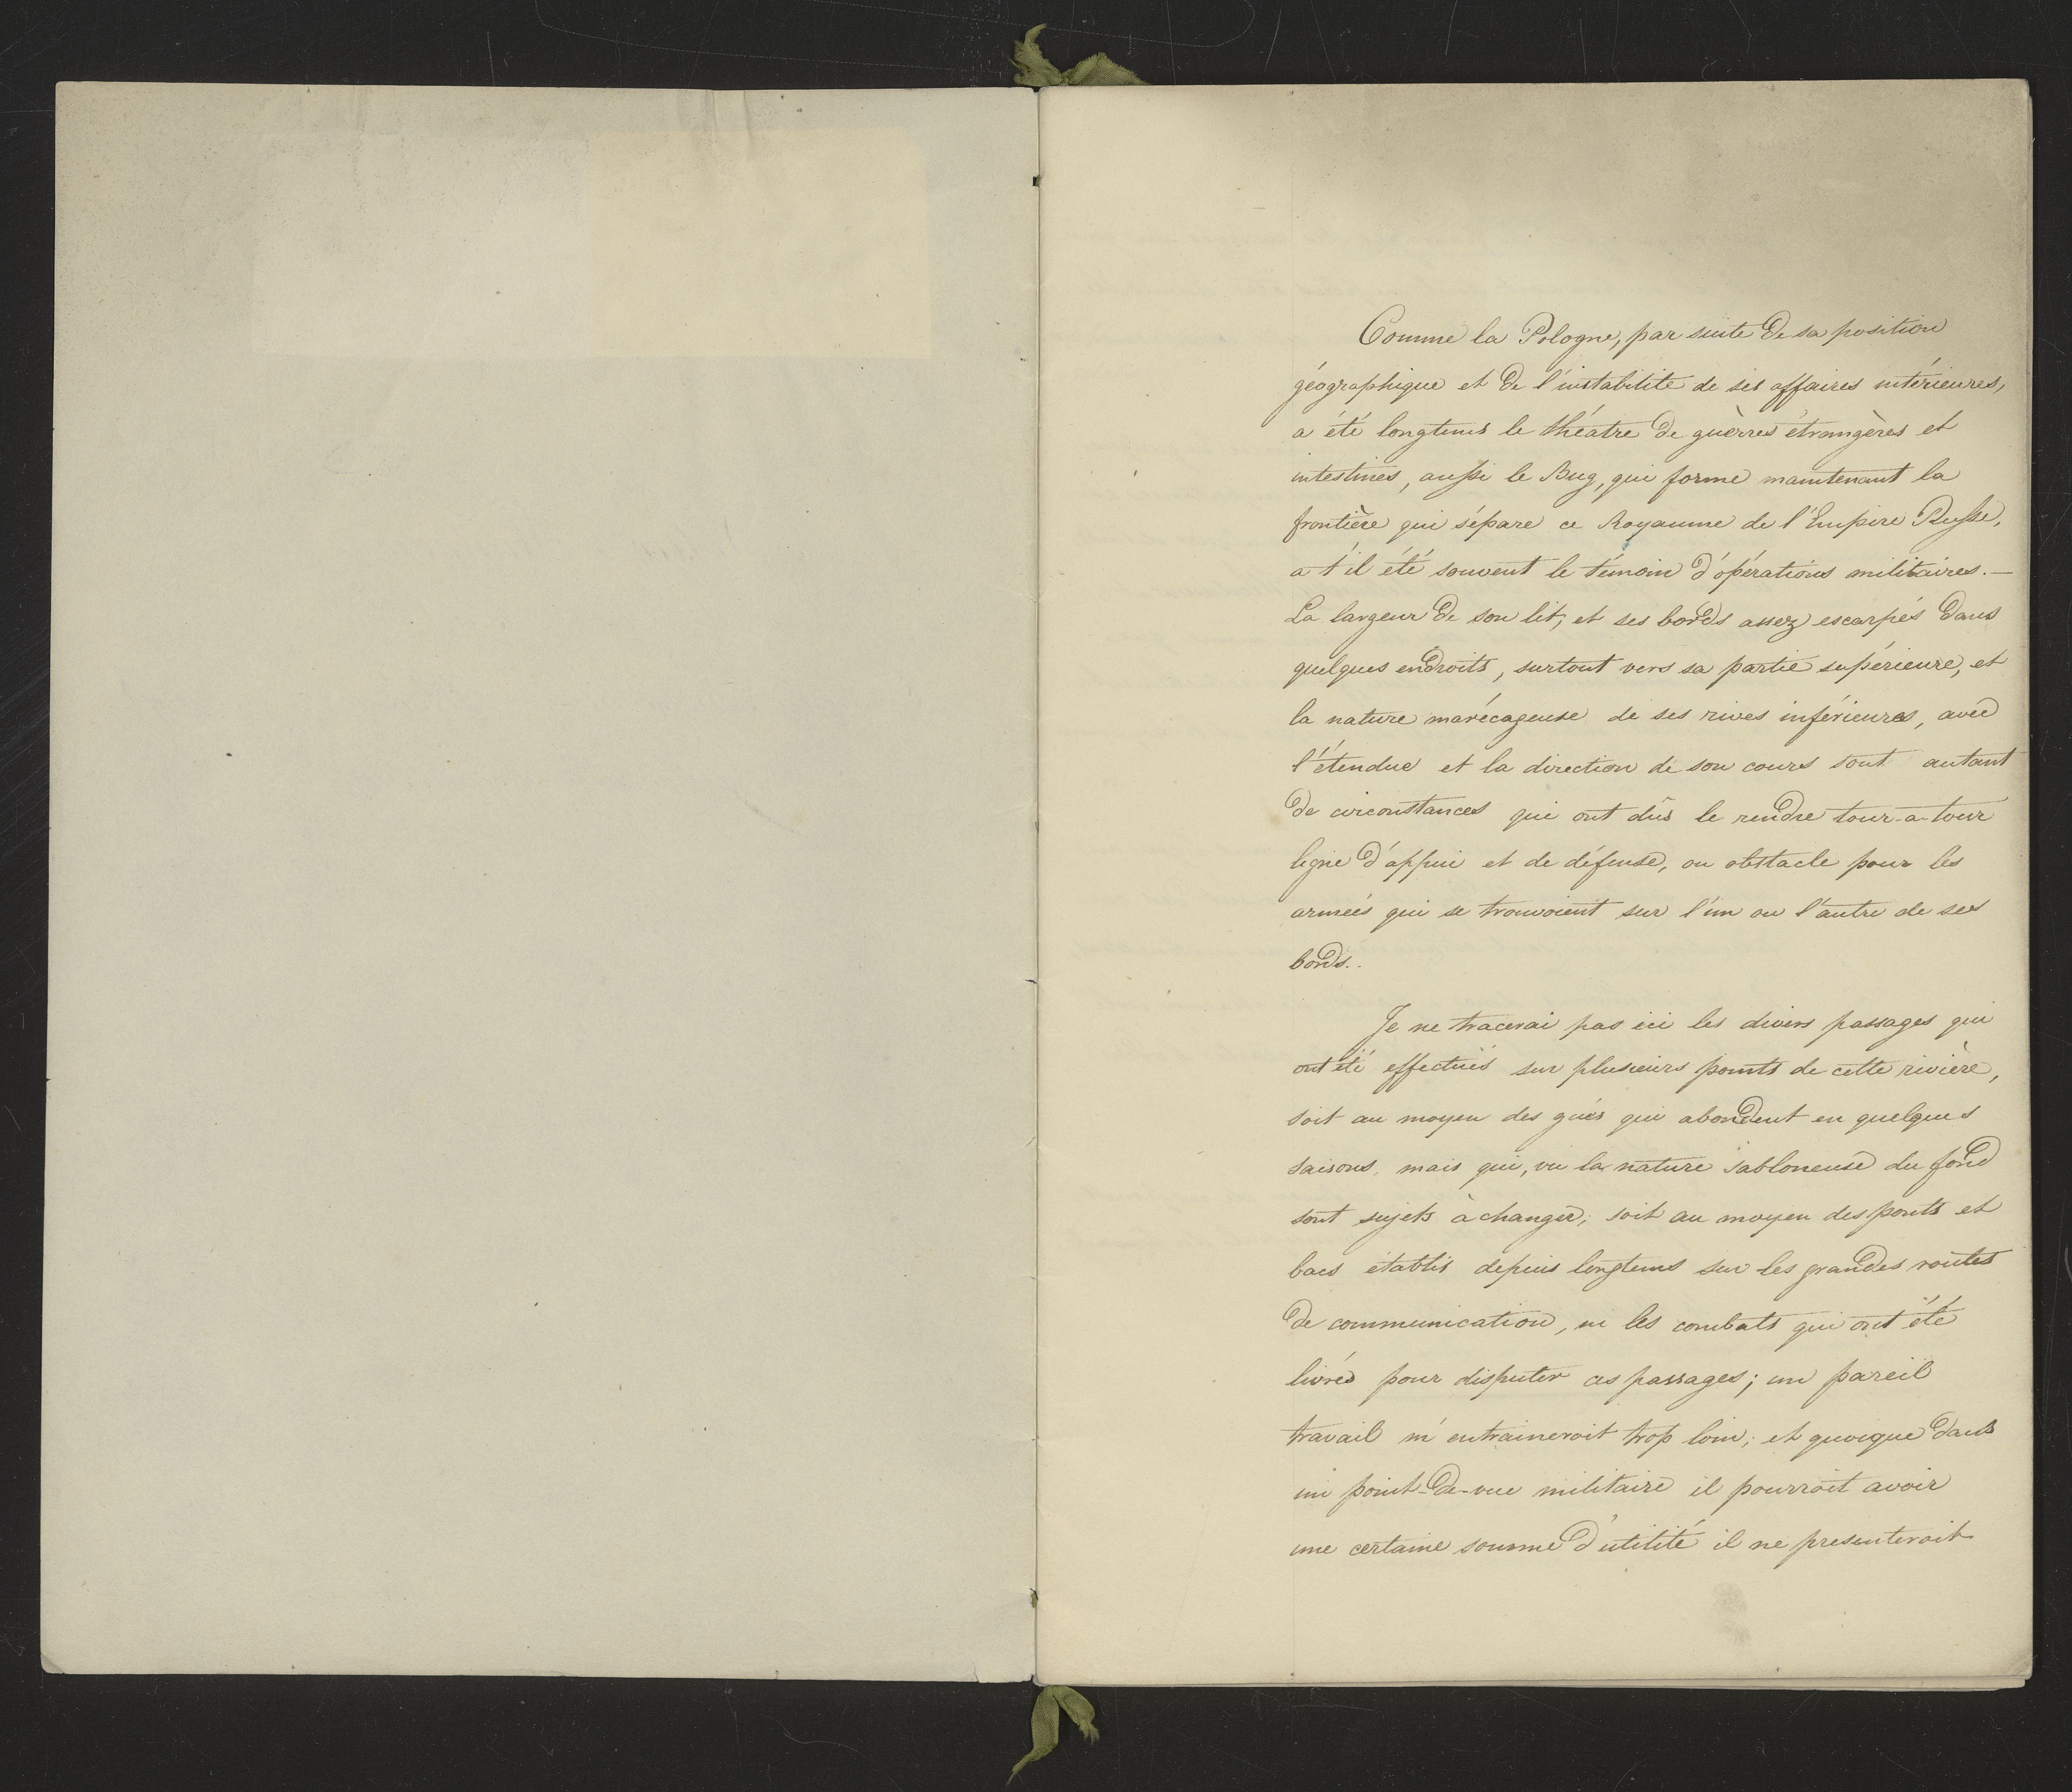 Comme la Pologne, par suite de sa position
géographique et de l'instabilité de ses affaires intérieures,
a été longtems le théatre de guèrres étrangères et
intestines, aussi le Bug, qui forme maintenant la
frontière qui sépare ce Royaume de l'Empire Russe,
a t'il été souvent le témoin d'opérations militaires.—
La largeur de son lit, et ses bords assez escarpés dans
quelques endroits, surtout vers sa partie supérieure, et
la nature marécageuse de ses rives inférieures, avec
l'étendue et la direction de son cours sont autant
de circonstances qui ont dûs le rendre tour-a-tour
ligne d'appui et de défense, ou obstacle pour les
armées qui se trouvoient sur l'un ou l'autre de ses
bords..
Je ne tracerai pas ici les divers passages qui
ont été effectués sur plusieurs points de cette rivière,
soit au moyen des gués qui abondent en quelques
saisons, mais qui, vu la nature sabloneuse du fond
sont sujets à changer; soit au moyen des ponts et
bacs établis depuis longtems sur les grandes routes
de communication, ni les combats qui ont été
livrés pour disputer ces passages; un pareil
travail m'entraineroit trop loin; et quoique dans
un point-de-vue militaire il pourroit avoir
une certaine somme d'utilité il ne presenteroit